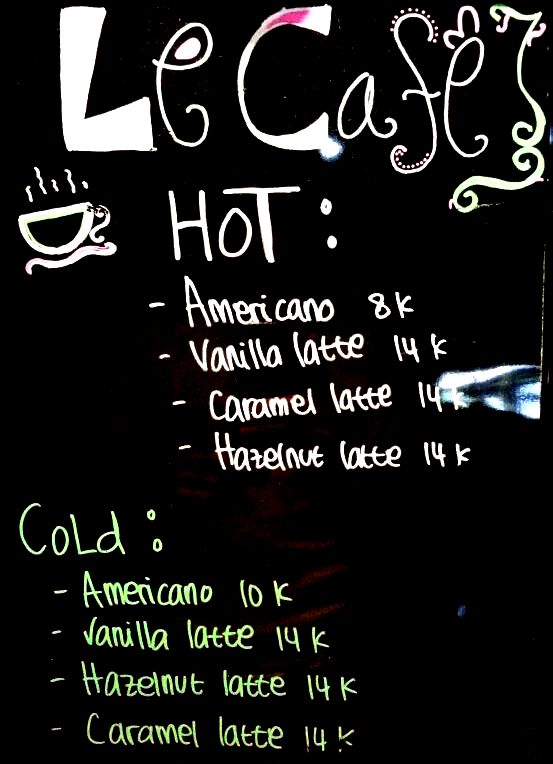 Le Cafe
HOT :
- Americano 8K
- Vanilla latte 14 K
- Caramel latte 14K
- Hazelnut latte 14 K
CoLd :
- Americano 10 K
- Vanilla latte 14 K
- Hazelnut latte 14 K
- Caramel latte 14 K